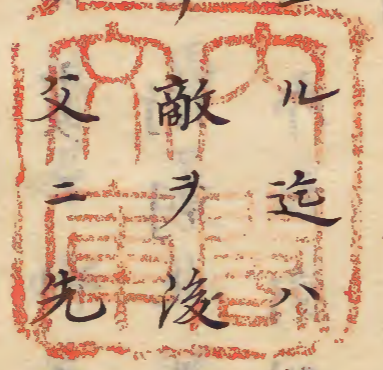 ル迄ハ
敵ヲ後
父ニ先